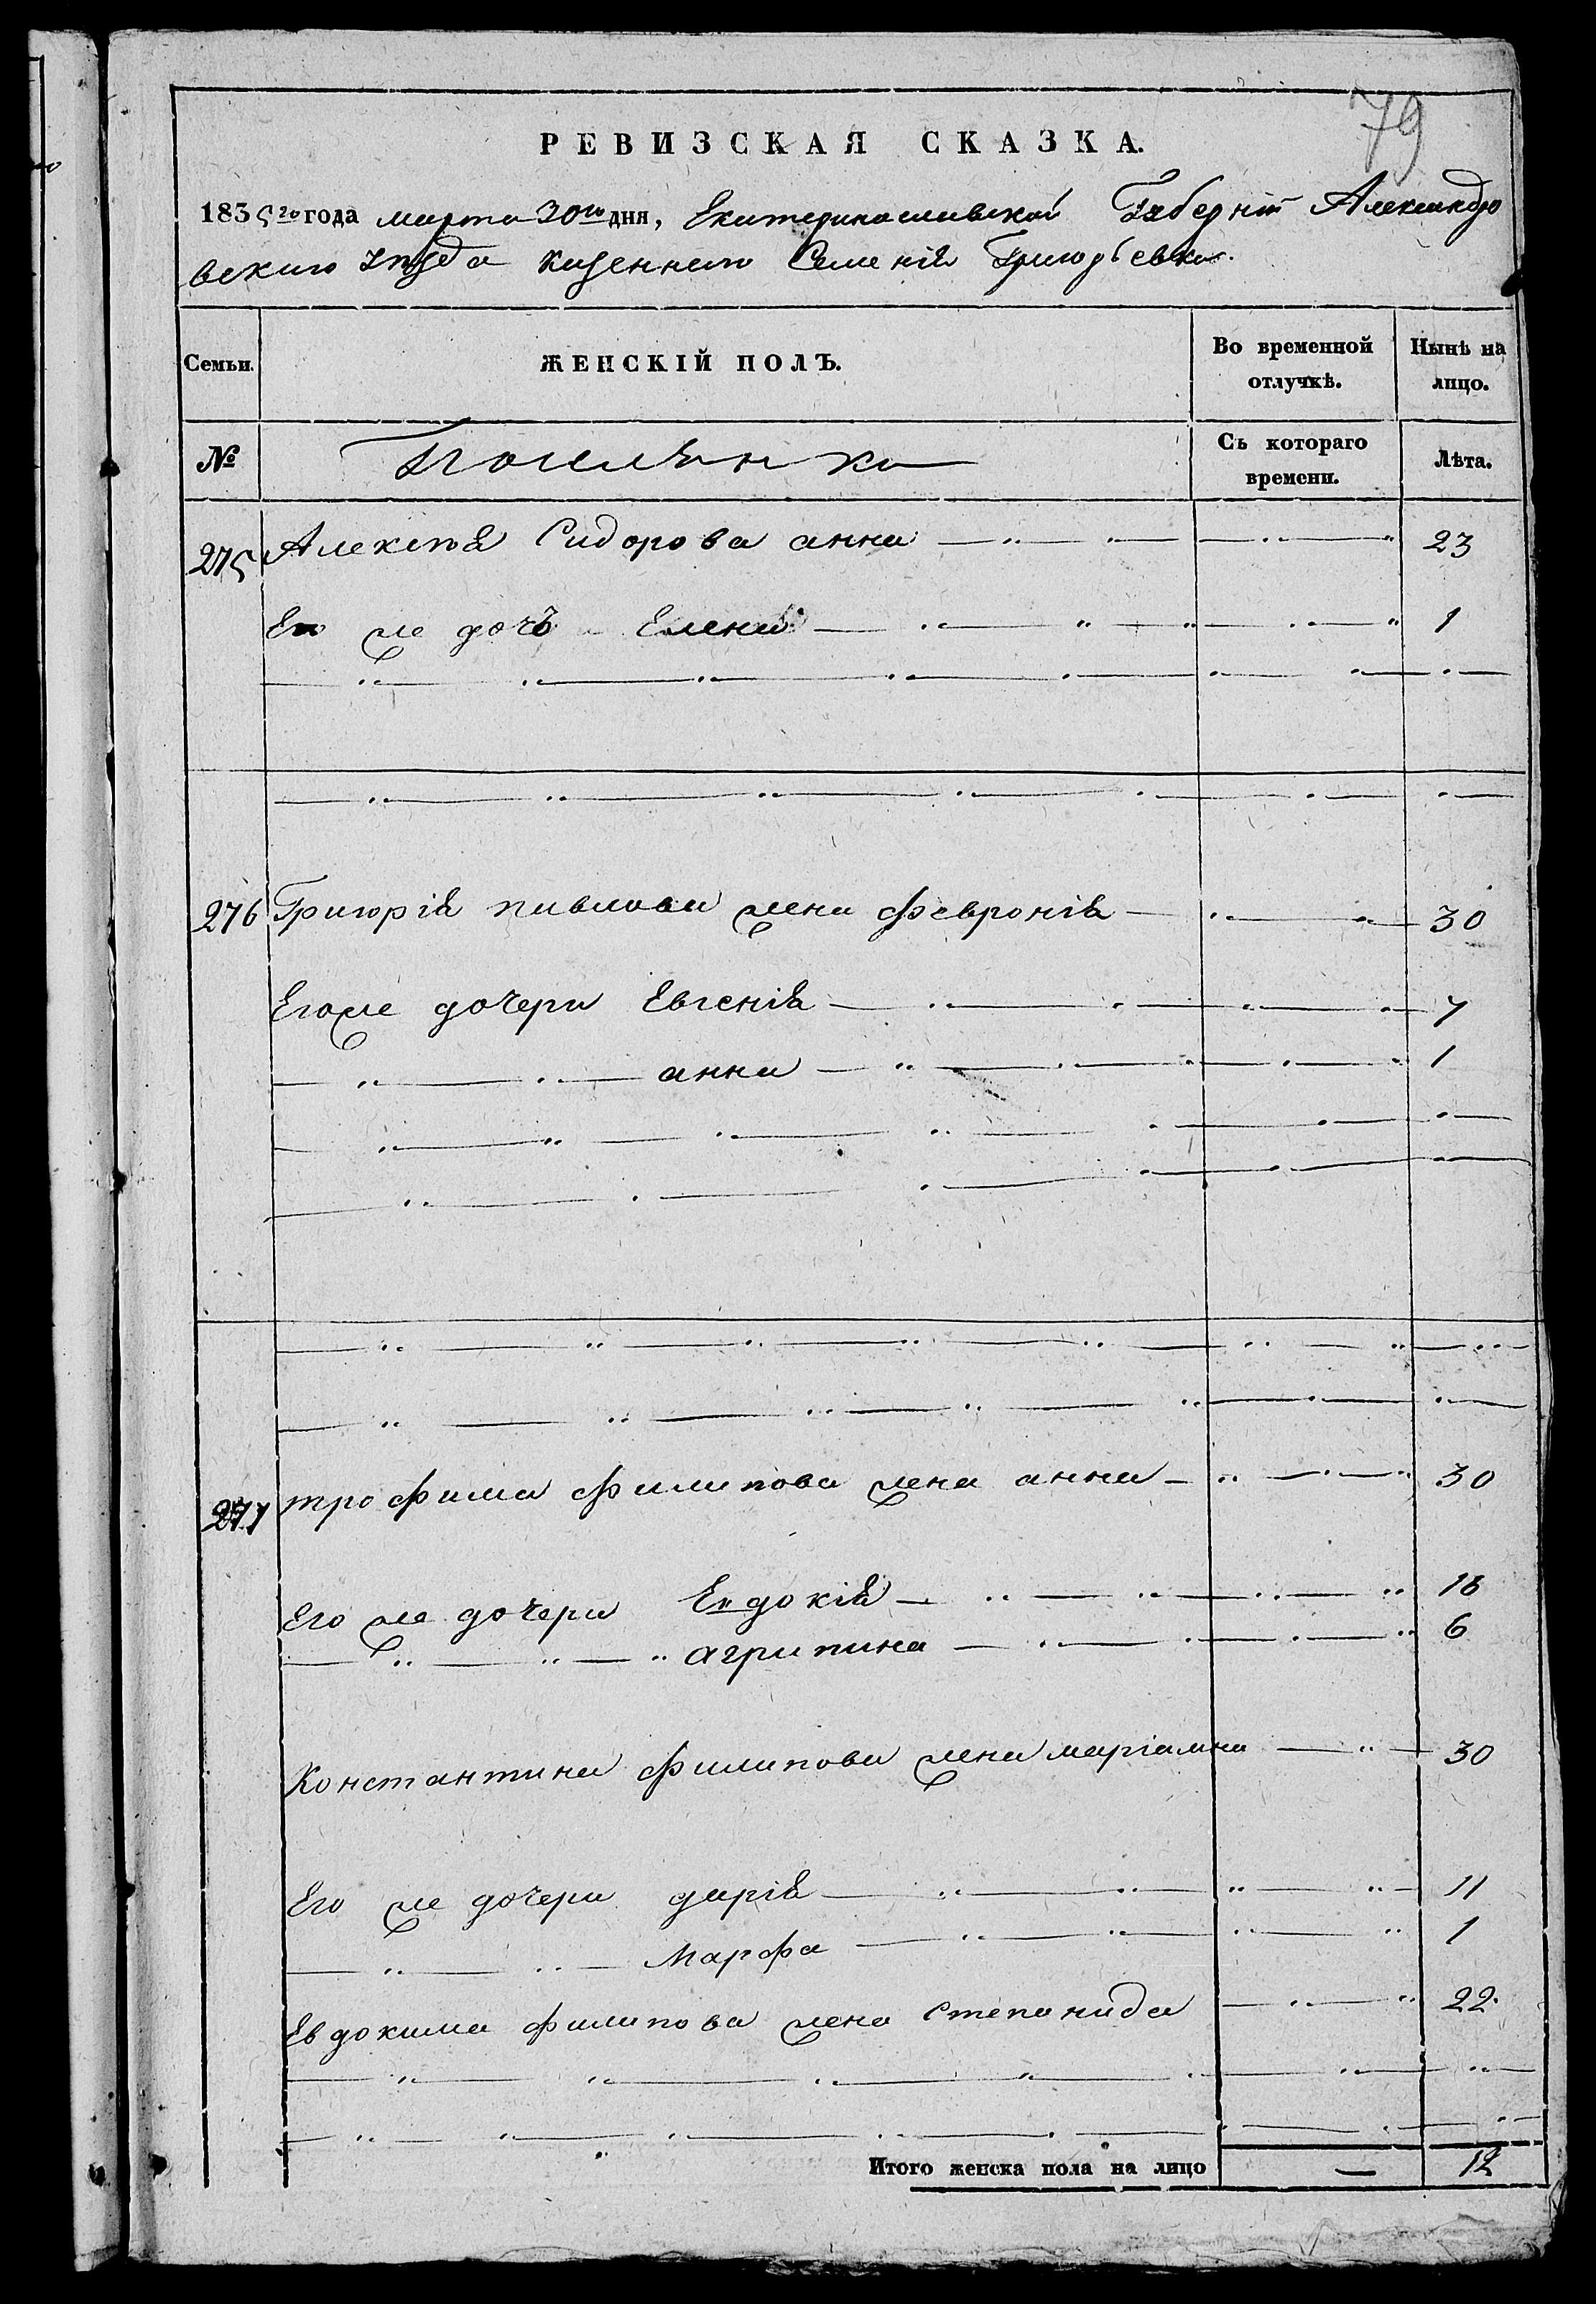 79
РЕВИЗСКАЯ СКАЗКА.
1835го года марта 30го дня, Екатеринославской Губерніи Александро
вскаго уезда казеннаго Селенія Григорьевки.
Семьи.
ЖЕНСКІЙ ПОЛЪ.
Во временной отлучкѣ.
Нынѣ на лицо.
№
Поселянки
Съ котораго времени.
Лѣта.
275 Алексѣя Сидорова анна 23
Его же дочь Елена 1
276 Григорія павлова жена Февронія 30
Егоже дочери Евгенія 7
анна 1
277 трофима Филипова жена анна 30
Его же дочери Евдокія
агрипина 6
Константина Филипова жена маріамна 30
Его же дочери дарія 11
Марфа 1
Евдокима Филипова жена Степанида 22
Итого женска пола на лицо — 12